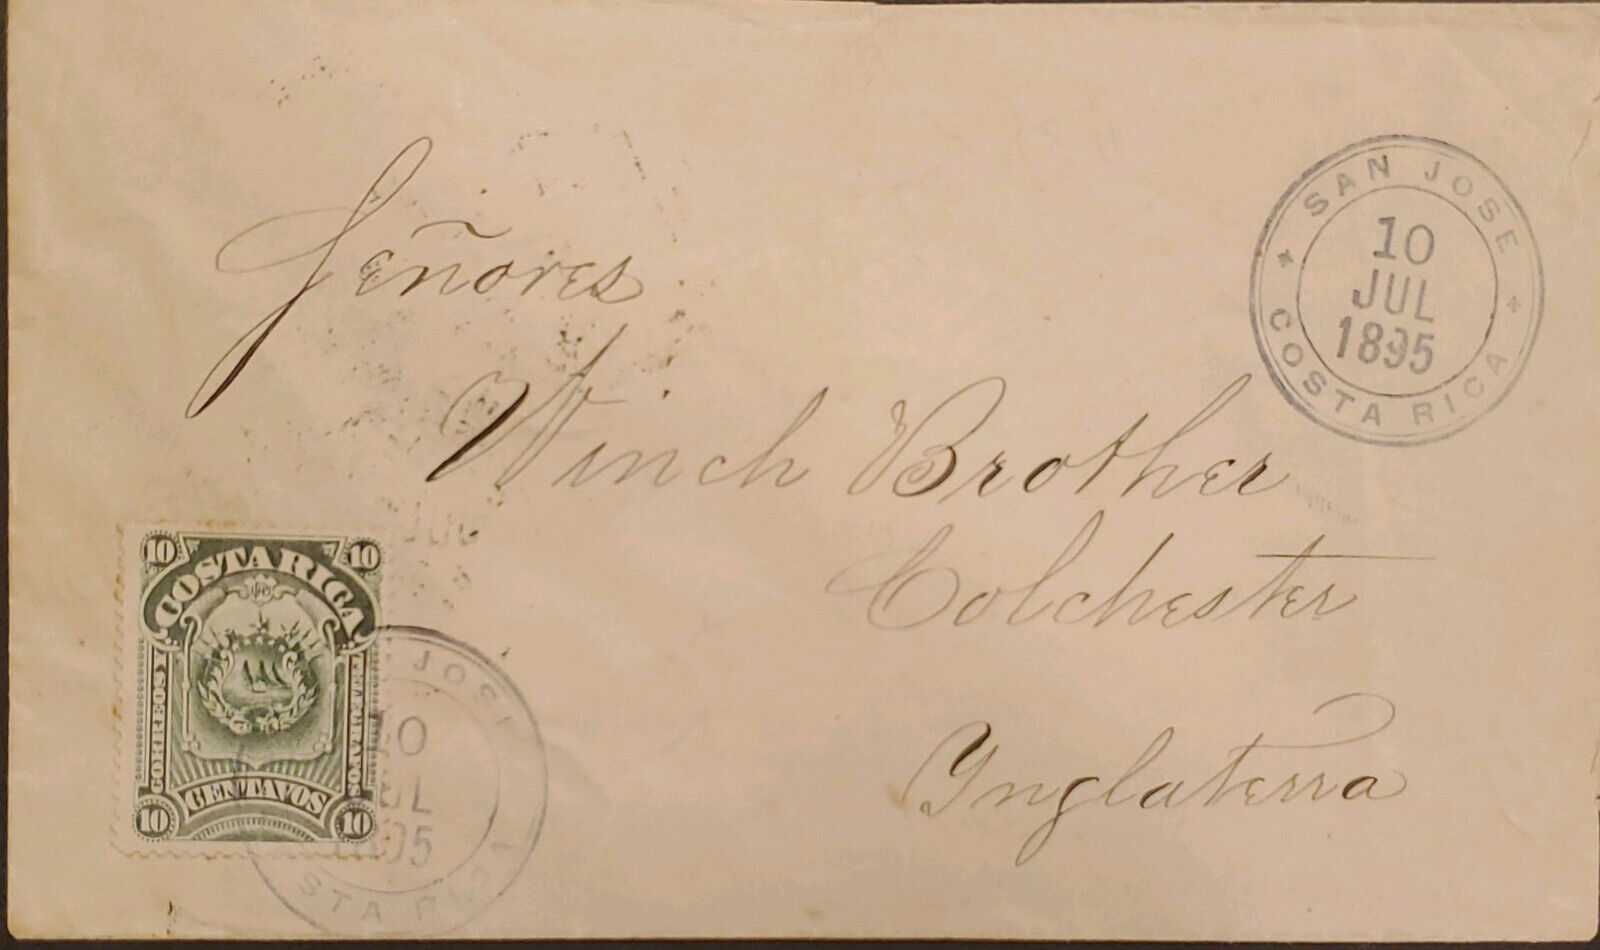 Señores
Winch Brother
Colchester
Ynglaterra
SAN JOSE
10
JUL
1895
COSTA RICA
10 10
COSTA RICA
CORREOS Y
TELEGRAFOS
CENTAVOS
10 10
JOSE
10
JUL
1895
STA RICA